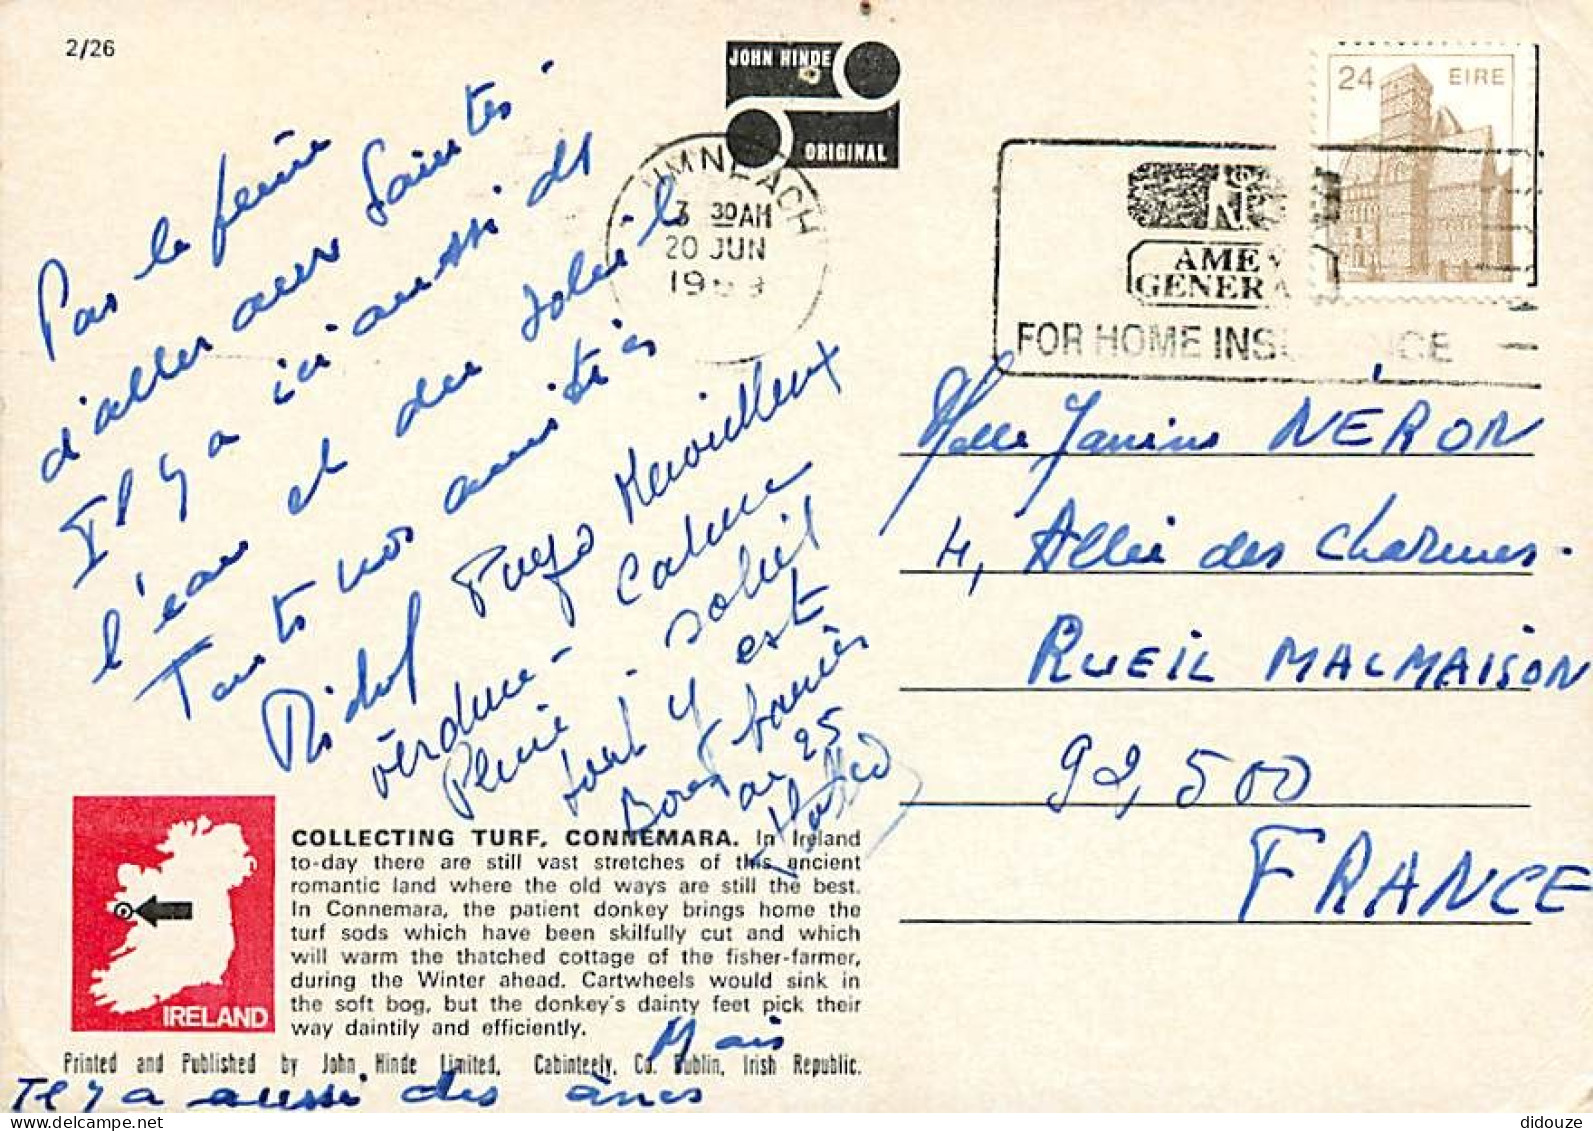 2/26
JOHN HINDE
ORIGINAL
24 EIRE
3 30AM
20 JUN
FOR HOME INS
Pas la peine
d'aller aux Saintes -
Il y a ici aussi de
l'eau et du soleil
Toutes nos amitiés
Pays Merveilleux
Calme
verdure -
soleil
Pluie -
tout y est
Melle Janine NÉRON
4, Allée des Charmes.
RUEIL MALMAISON
92,500
FRANCE
IRELAND
COLLECTING TURF, CONNEMARA. In Ireland
to-day there are still vast stretches of this ancient
romantic land where the old ways are still the best.
In Connemara, the patient donkey brings home the
turf sods which have been skilfully cut and which
will warm the thatched cottage of the fisher-farmer,
during the Winter ahead. Cartwheels would sink in
the soft bog, but the donkey's dainty feet pick their
way daintily and efficiently.
Printed and Published by John Hinde Limited, Cabinteely, Co. Dublin, Irish Republic.
Mais
Il y a aussi des ânes
didouze